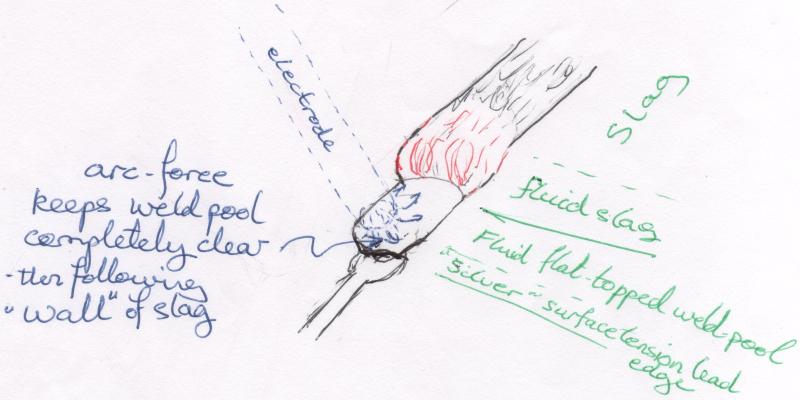 electrode
arc-force
keeps weld pool
completely clear
- then following
"wall" of slag
Slag
fluid slag
Fluid flat-topped weld-pool
"silver" surface tension lead
edge